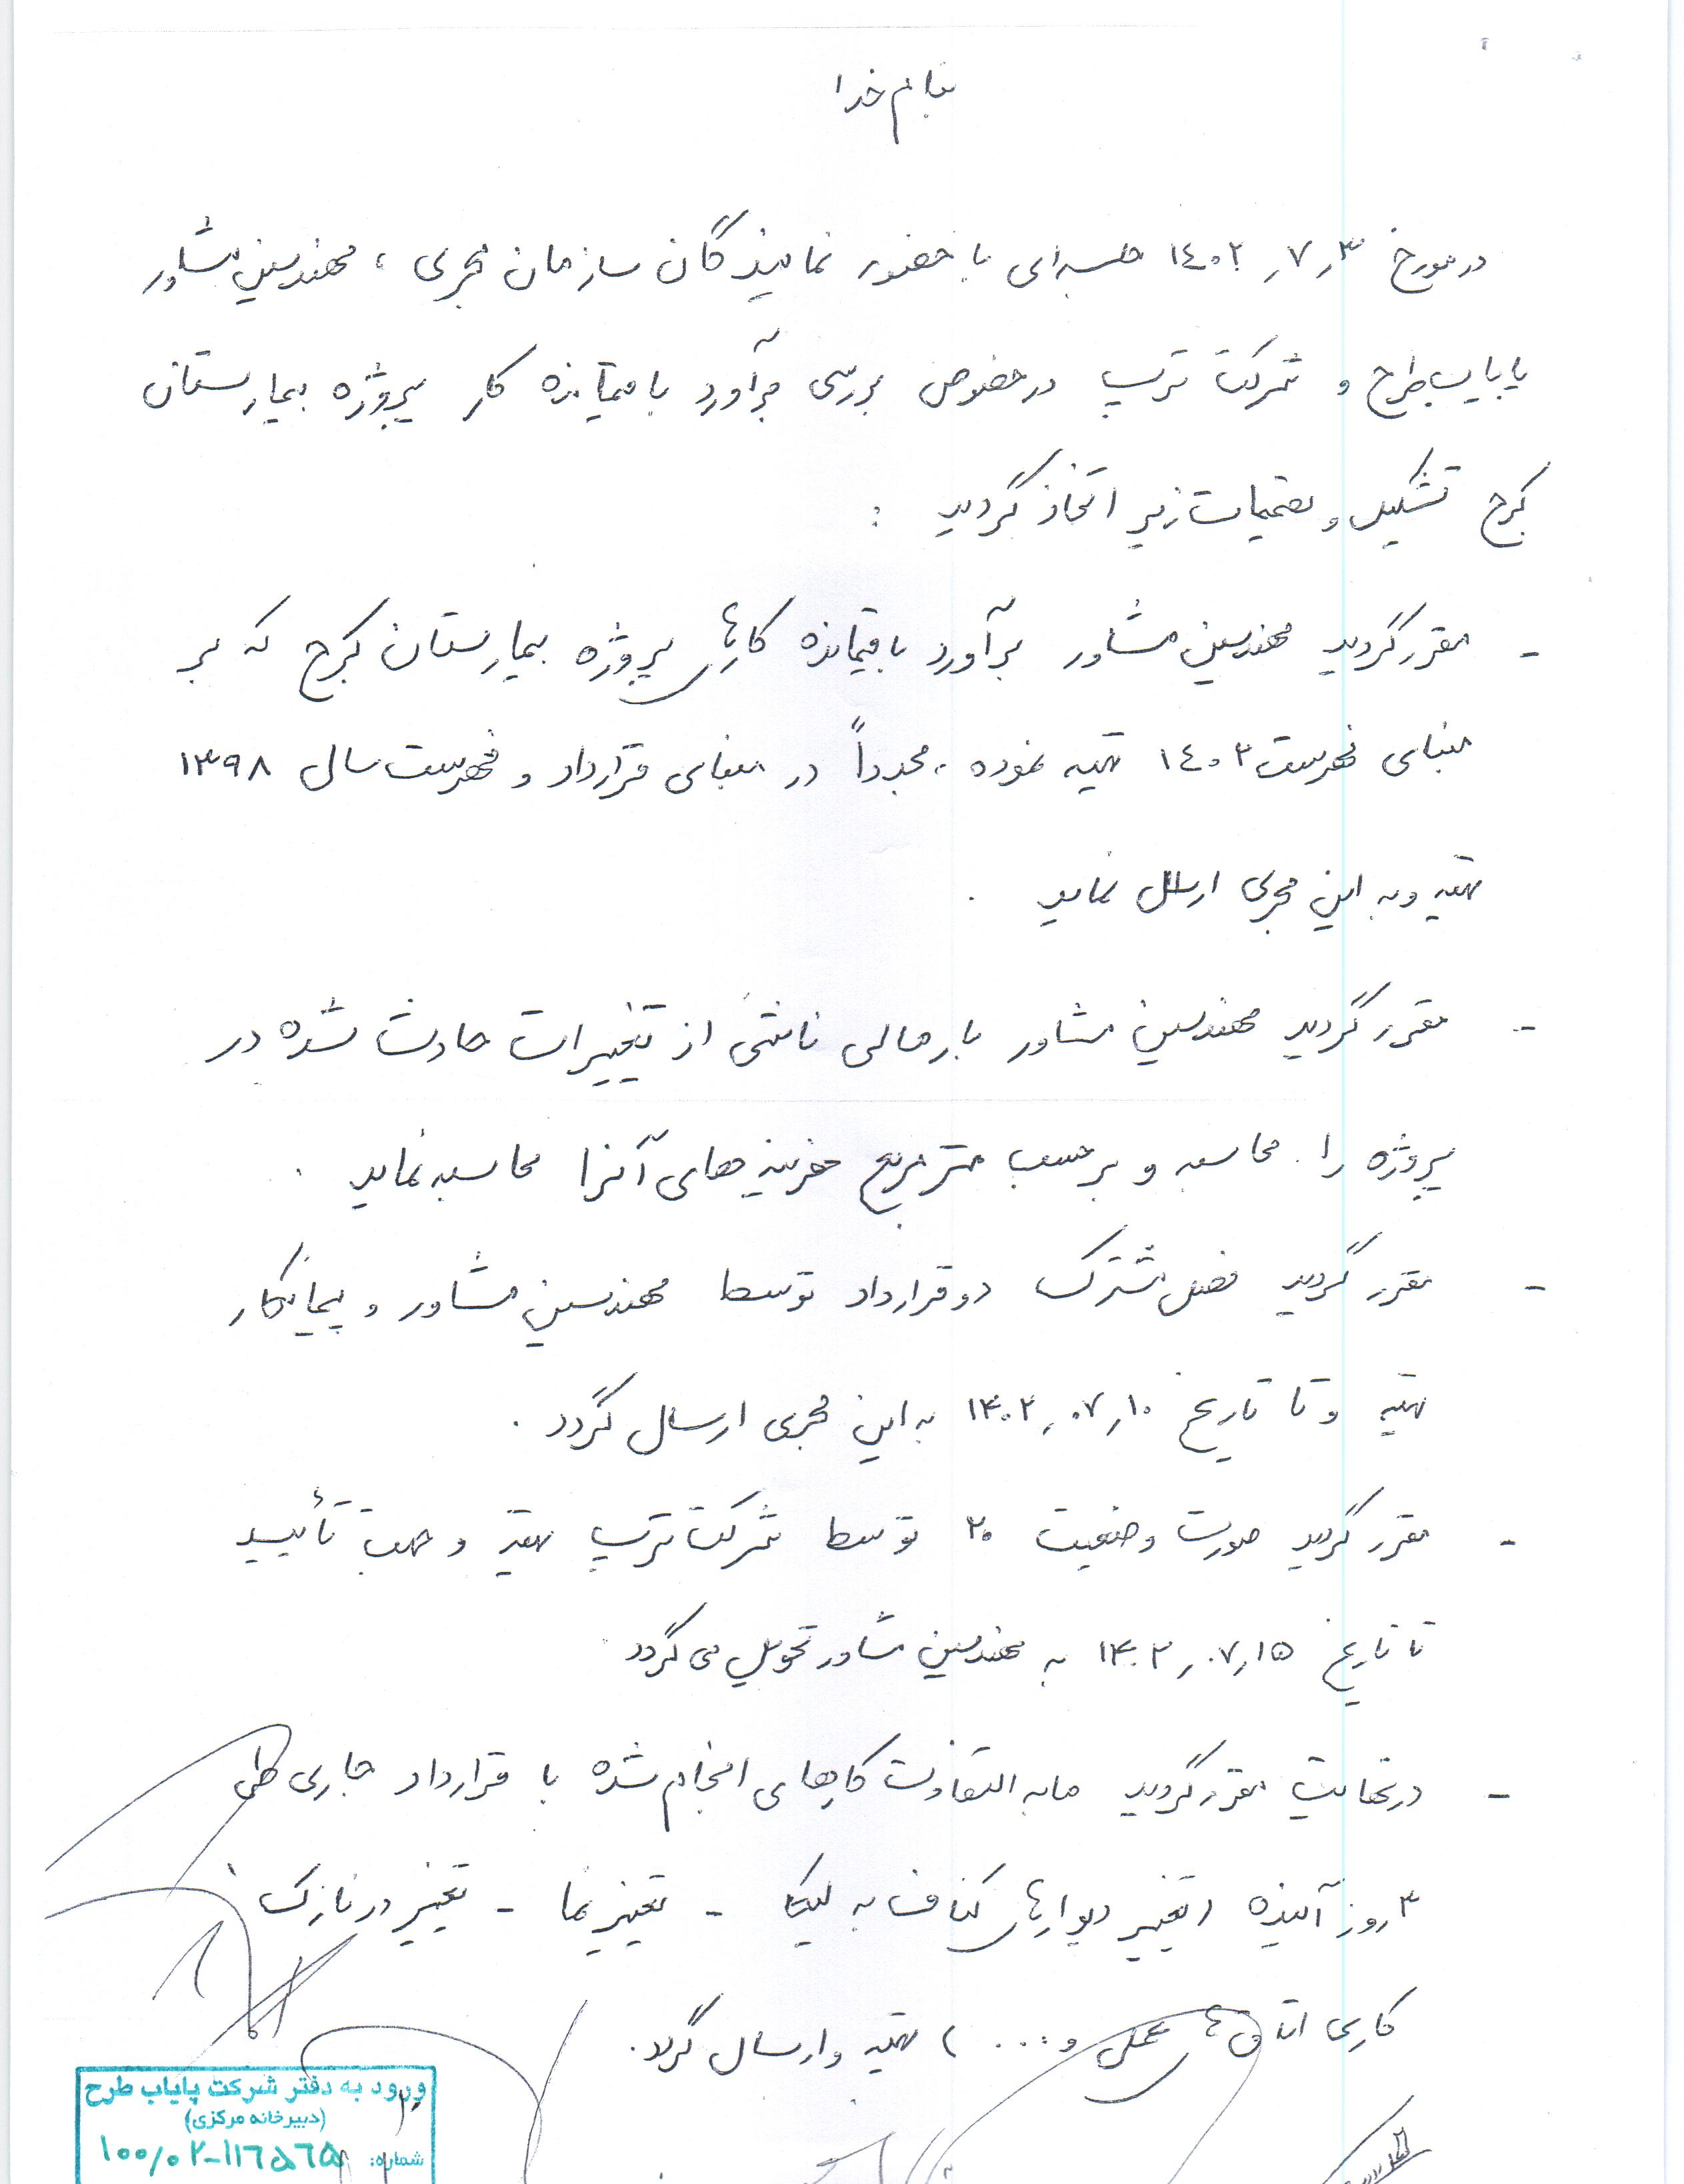 بنام خدا
در مورخ ۱۴۰۲٫۷٫۳ جلسه‌ای با حضور نمایندگان سازمان مجری ، مهندسین مشاور
پایاب طرح و شرکت ترسیب در خصوص بررسی برآورد باقیمانده کار پروژه بیمارستان
کرج تشکیل و تصمیمات زیر اتخاذ گردید :
- مقرر گردید مهندسین مشاور برآورد باقیمانده کارهای پروژه بیمارستان کرج که بر
مبنای فهرست ۱۴۰۲ تهیه نموده ، مجدداً در مبنای قرارداد و فهرست سال ۱۳۹۸
تهیه و به این مجری ارسال نماید .
- مقرر گردید مهندسین مشاور بار مالی ناشی از تغییرات حادث شده در
پروژه را محاسبه و برحسب متر مربع هزینه‌های آنرا محاسبه نماید .
- مقرر گردید فصل مشترک دو قرارداد توسط مهندسین مشاور و پیمانکار
تهیه و تا تاریخ ۱۴۰۲٫۰۷٫۱۰ به این مجری ارسال گردد .
- مقرر گردید صورت وضعیت ۲۰ توسط شرکت ترسیب تهیه و جهت تأیید
تا تاریخ ۱۴۰۲٫۰۷٫۱۵ به مهندسین مشاور تحویل می گردد
- در نهایت مقرر گردید مابه التفاوت کارهای انجام شده با قرارداد جاری طی
۳ روز آینده ( تغییر دیوارهای کناف به لیکا - تغییر نما - تغییر در نازک
کاری اتاق های عمل و ... ) تهیه و ارسال گردد .
ورود به دفتر شرکت پایاب طرح
(دبیرخانه مرکزی)
شماره: ۱۰۰/۰۲-۱۱۶۵۶۵